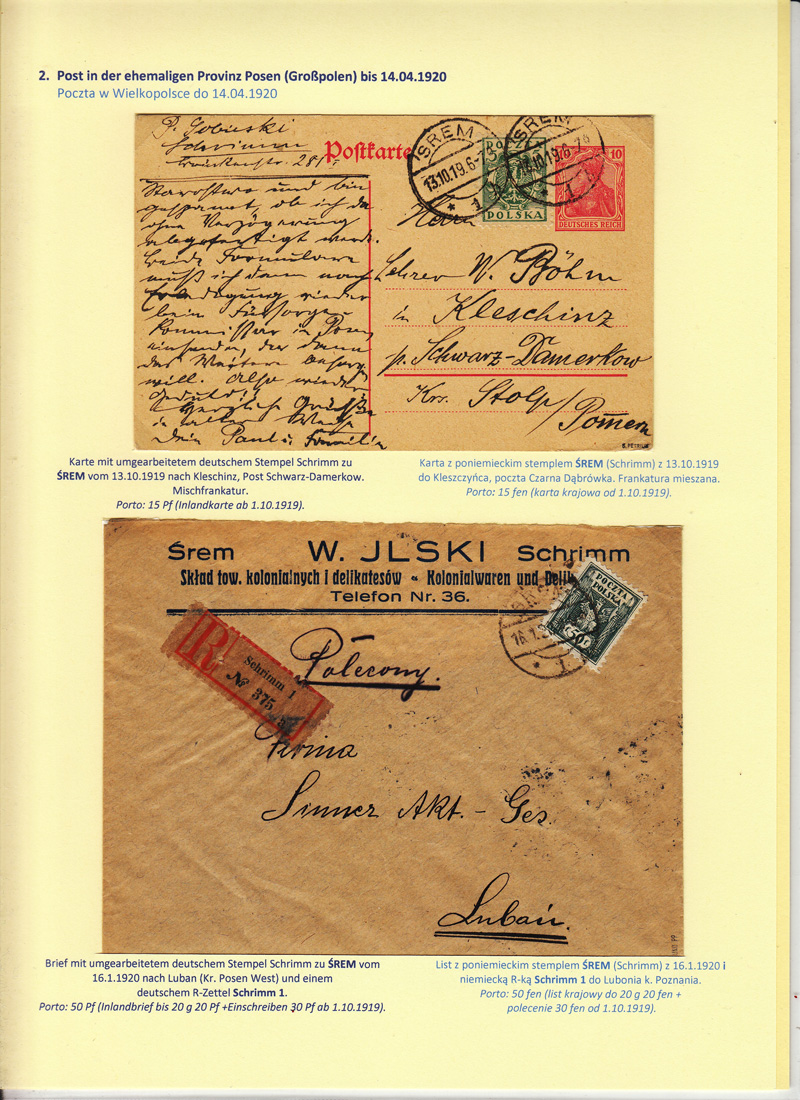 2. Post in der ehemaligen Provinz Posen (Großpolen) bis 14.04.1920
Poczta w Wielkopolsce do 14.04.1920
Postkarte
ŚREM
13.10.19.6-7
ŚREM
13.10.19.6-7
POLSKA
10
DEUTSCHES REICH
und bin
gespannt, ob ich da
ohne Verzögerung
abgefertigt werde.
Beide Formulare
muß ich dann nach
wieder
beim Fürsorge-
Kommissar in Posen
einsenden, der dann
das Weitere
will. Also wieder
Geduld!
Herzliche Grüße
in alter
Dein Paul u. Familie
Herrn
Lehrer W. Böhm
in Kleschinz
p. Schwarz-Damerkow
Krs. Stolp/Pommern
Karte mit umgearbeitetem deutschem Stempel Schrimm zu
ŚREM vom 13.10.1919 nach Kleschinz, Post Schwarz-Damerkow.
Mischfrankatur.
Porto: 15 Pf (Inlandkarte ab 1.10.1919).
Karta z poniemieckim stemplem ŚREM (Schrimm) z 13.10.1919
do Kleszczyńca, poczta Czarna Dąbrówka. Frankatura mieszana.
Porto: 15 fen (karta krajowa od 1.10.1919).
Śrem W. JLSKI Schrimm
Skład tow. kolonialnych i delikatesów « Kolonialwaren und Delik
Telefon Nr. 36.
POCZTA
POLSKA
50
16.1.
R
Schrimm 1
№ 375
Polecony.
Firma
Sinner Akt.-Ges.
Lubań.
Brief mit umgearbeitetem deutschem Stempel Schrimm zu ŚREM vom
16.1.1920 nach Luban (Kr. Posen West) und einem
deutschem R-Zettel Schrimm 1.
Porto: 50 Pf (Inlandbrief bis 20 g 20 Pf +Einschreiben 30 Pf ab 1.10.1919).
List z poniemieckim stemplem ŚREM (Schrimm) z 16.1.1920 i
niemiecką R-ką Schrimm 1 do Lubonia k. Poznania.
Porto: 50 fen (list krajowy do 20 g 20 fen +
polecenie 30 fen od 1.10.1919).